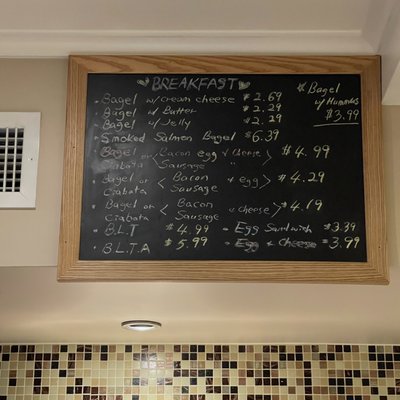 BREAKFAST
Bagel w/cream cheese $2.69
Bagel w/ Butter $2.29
Bagel w/Jelly $2.29
Smoked Salmon Bagel $6.39
Bagel or < Bacon egg & cheese > $4.99
Ciabata Sausage
Bagel or < Bacon & egg > $4.29
Ciabata Sausage
Bagel or < Bacon & cheese > $4.19
Ciabata Sausage
B.L.T $4.99
B.L.T.A $5.99
Egg Sandwich $3.39
Egg & Cheese $3.99
Bagel
w/ Hummus
$3.99